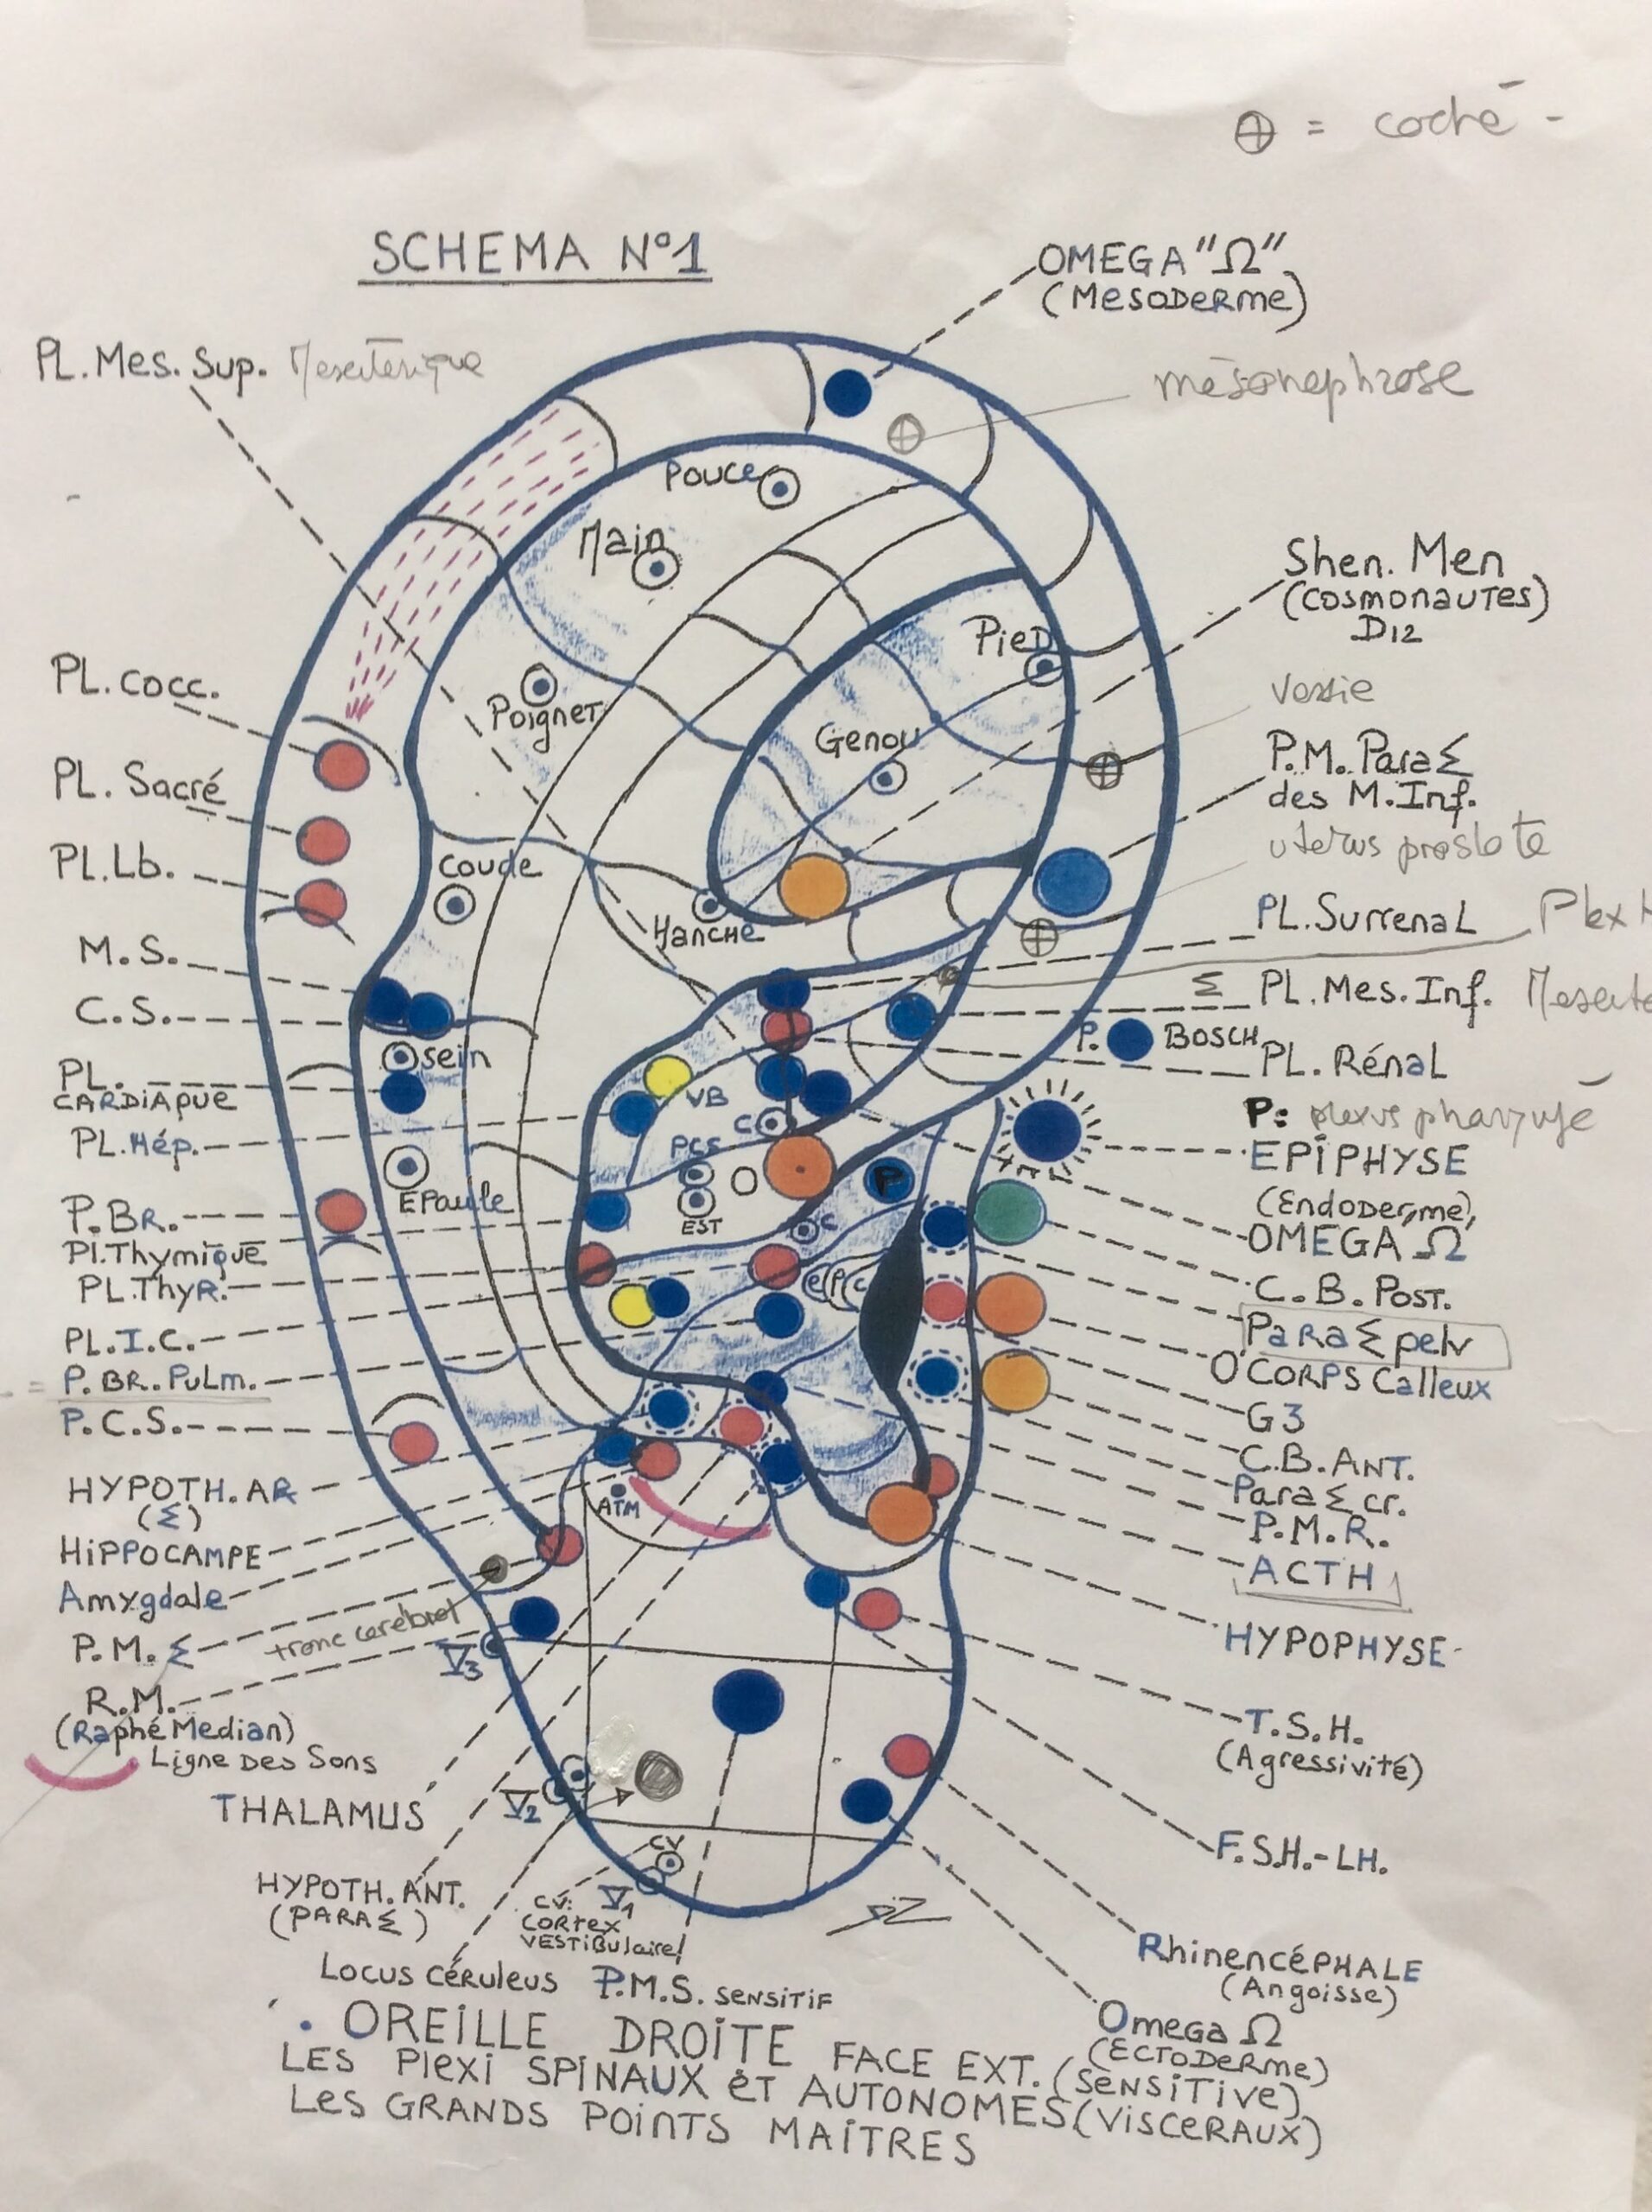 ⊕ = coché -
SCHEMA N°1
OMEGA "Ω"
(MESODERME)
PL. Mes. Sup.
Pouce
Main
Shen. Men
(COSMONAUTES)
D12
Pied
PL. Cocc.
Poignet
Genou
P.M. Para Σ
des M. Inf.
PL. Sacré
uterus prostate
PL. Lb.
Coude
Hanche
PL. Surrenal
Plex
M.S.
Σ PL. Mes. Inf.
C.S.
Sein
P. BOSCH
PL. Rénal
PL. CARDIAQUE
VB
C
P: plexus
PL. Hép.
PCS
EPIPHYSE
(Endoderme)
O
P
EPaule
EST
P. BR.
OMEGA Ω
Pl. Thymique
C
PL. Thyr.
C.B. POST.
Para Σ pelv
PL. I.C.
O' CORPS Calleux
= P. BR. Pulm.
G3
P.C.S.
C.B. ANT.
Para Σ cr.
HYPOTH. AR
(Σ)
ATM
P.M.R.
HIPPOCAMPE
ACTH
Amygdale
tronc cerebral
P.M. Σ
V3
HYPOPHYSE
R.M.
(Raphé Median)
T.S.H.
(Agressivité)
Ligne Des Sons
THALAMUS
V2
F.S.H.-LH.
CV
HYPOTH. ANT.
(PARA Σ)
V1
CV:
CORTEX
VESTIBulaire!
Rhinencéphale
(Angoisse)
Locus Céruleus
P.M.S. SENSITIF
Omega Ω
(ECTODERME)
. OREILLE DROITE FACE EXT. (SENSITIVE)
LES Plexi SPINAUX ET AUTONOMES (VISCERAUX)
Les GRANDS POINTS MAITRES